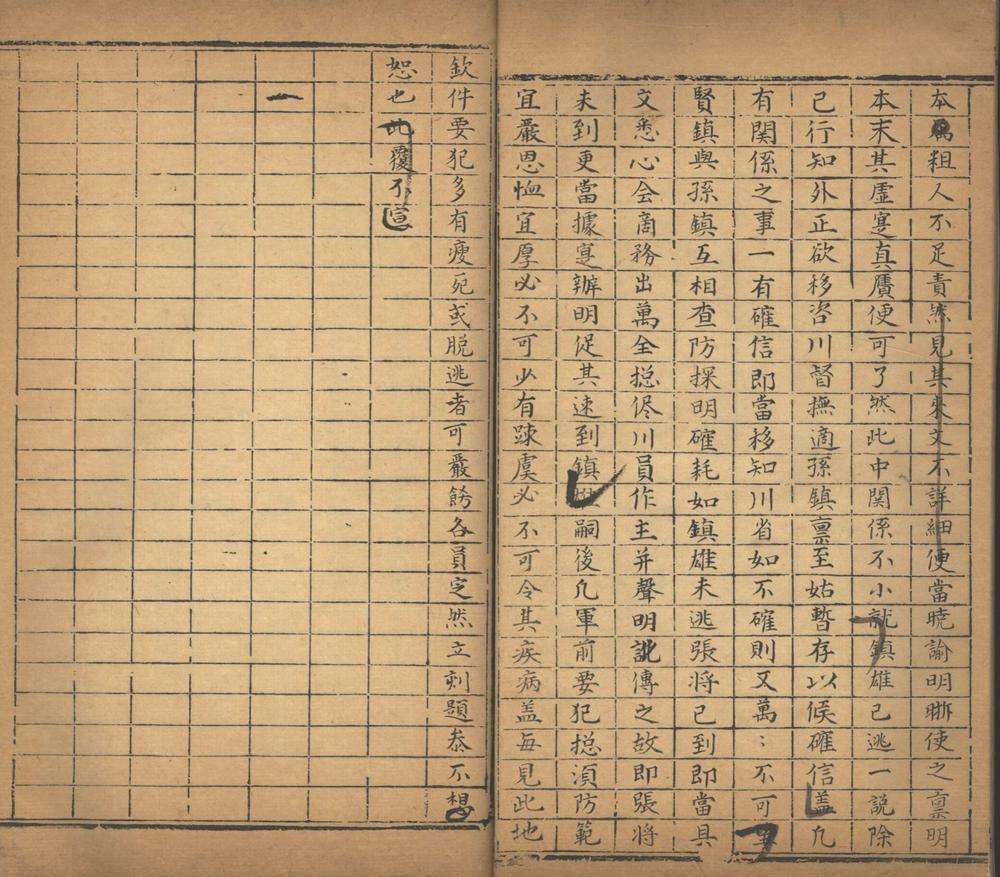 本属粗人不足責然見其來文不詳細便當曉諭明晣使之禀明
本末其虛寔真贗便可了然此中関係不小就鎮雄已逃一説除
已行知外正欲移咨川督撫適孫鎮禀至姑暫存以候確信盖凢
有関係之事一有確信即當移知川省如不確則又萬〻不可
賢鎮與孫鎮互相查防探明確耗如鎮雄未逃張将已到即當具
文悉心会啇務出萬全揔係川員作主并聲明訛傳之故即張将
未到更當據寔辦明促其速到鎮嗣後凢軍前要犯揔湏防範
宜嚴恩恤宜厚必不可少有踈虞必不可令其疾病盖每見此地
欽件要犯多有瘦死或脱逃者可嚴餙各員定然立刻題叅不想
恕也此覆不宣